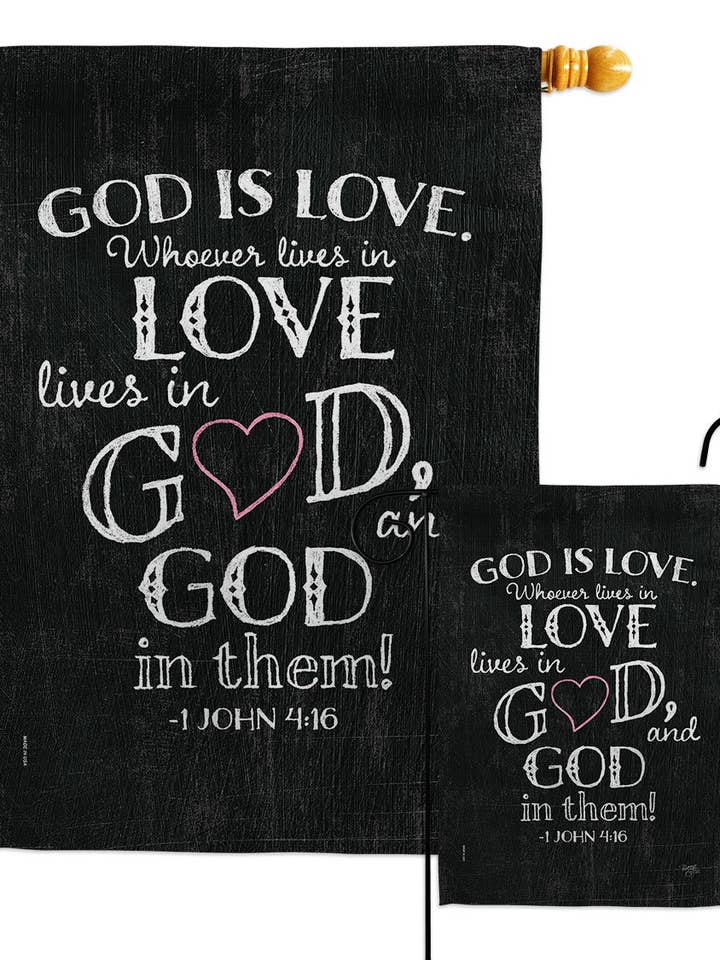 GOD IS LOVE.
Whoever lives in
LOVE
lives in
G D,
an
GOD
in them!
-1 JOHN 4:16
MADE IN USA
GOD IS LOVE.
Whoever lives in
LOVE
lives in
G D,
and
GOD
in them!
-1 JOHN 4:16